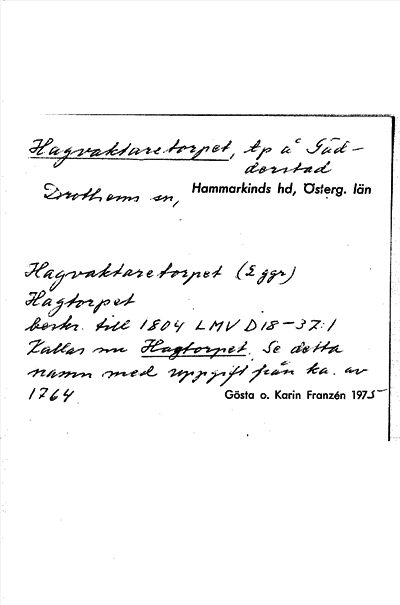 Hagvaktaretorpet, tp å Gäd-
derstad
Drothems sn, Hammarkinds hd, Österg. län
Hagvaktaretorpet (2 ggr)
Hagtorpet
beskr. till 1804 LMV D18-37:1
Kallas nu Hagtorpet. Se detta
namn med uppgift från ka. av
1764
Gösta o. Karin Franzén 1975